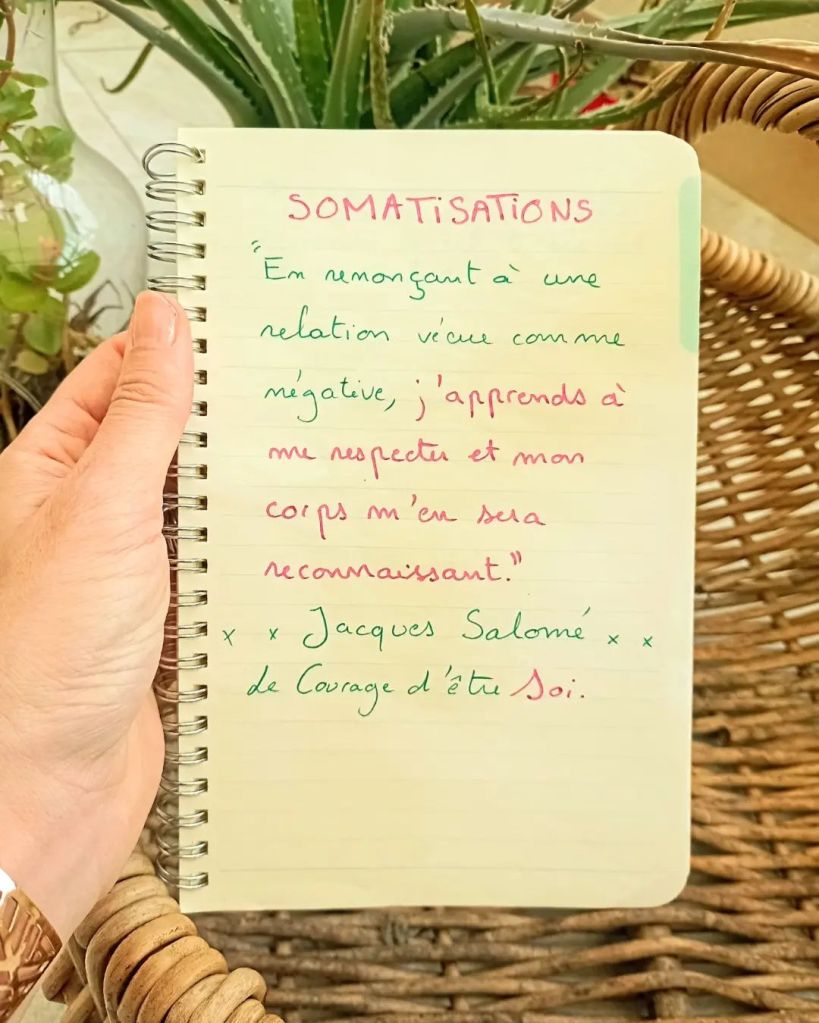 SOMATISATIONS
"En renonçant à une
relation vécue comme
négative, j'apprends à
me respecter et mon
corps m'en sera
reconnaissant."
x x Jacques Salomé x x
Le Courage d'être Soi.